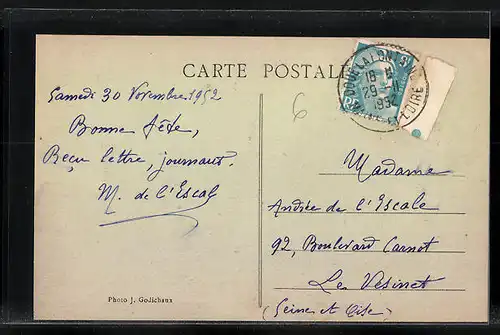 CARTE POSTALE
Samedi 30 Novembre 1952
Bonne fête,
Reçu lettre, journaux.
M. de l'Escale
Photo J. Godichaux
6
DOUÉ-LA-FONTAINE
18 H
29 -11
1952
MAINE-ET-LOIRE
RF
Madame
Andrée de l'Escale
92, Boulevard Carnot
Le Vésinet
(Seine et Oise)